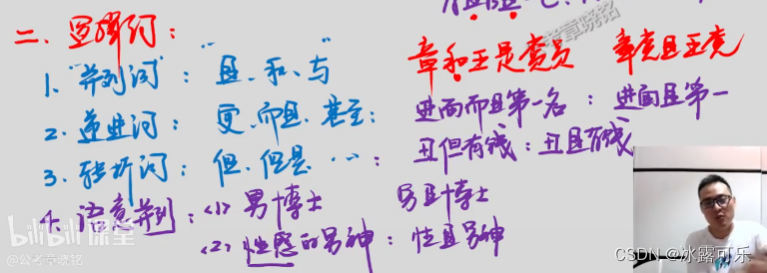 二、逻辑词：
1. "并列词"：且、和、与" 章和王是党员 章党且王党
2. 递进词：更、而且、甚至： 进面而且第一名：进面且第一
3. 转折词：但、但是…： 丑但有钱：丑且有钱
4. 语意并列：(1) 男博士 男且博士
(2) 性感的男神：性且男神
bilibili课堂
@公考章晓铭
章晓铭
CSDN @冰露可乐